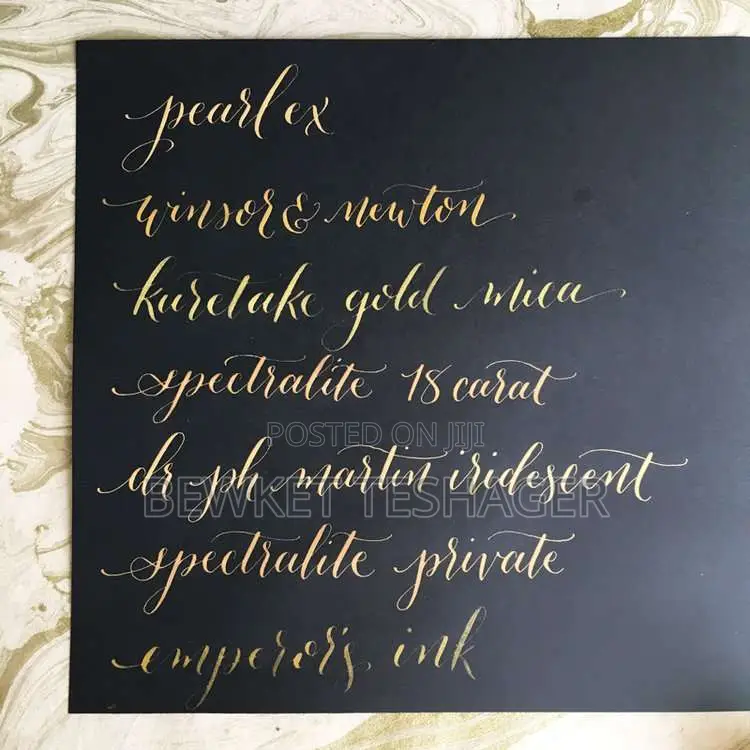 pearl ex
winsor & newton
kuretake gold mica
spectralite 18 carat
POSTED ON JIJI
dr ph martin iridescent
BEWKET TESHAGER
spectralite private
emperor's ink